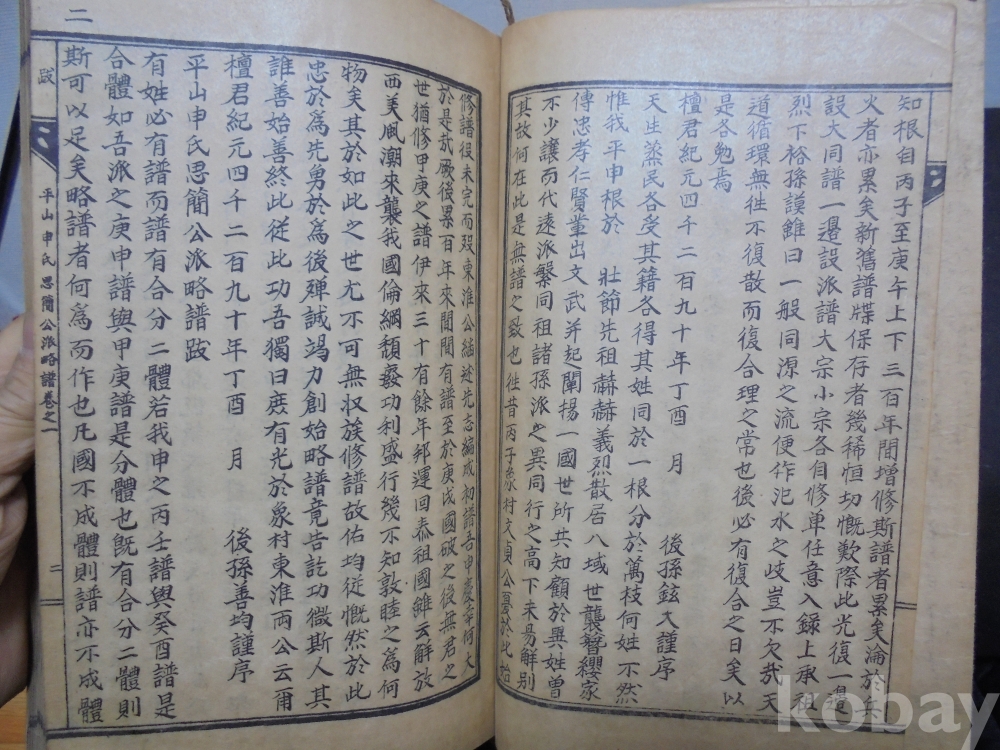 知根自丙子至庚午上下三百年間增修斯譜者累矣淪於兵
火者亦累矣新舊譜牒保存者幾稀恒切慨歎際此光復一邊
設大同譜一邊設派譜大宗小宗各自修單任意入錄上承祖
烈下裕孫謨雖曰一般同源之流便作汜水之歧豈不欠哉天
道循環無徃不復散而復合理之常也後必有復合之日矣以
是各勉焉
檀君紀元四千二百九十年丁酉 月 後孫鉉大謹序
天生蒸民各受其籍各得其姓同於一根分於萬枝何姓不然
惟我平申根於 壯節先祖赫赫義烈散居八域世襲簪纓家
傳忠孝仁賢輩出文武并起闡揚一國世所共知顧於異姓曾
不少讓而代遠派繁同祖諸孫派之異同行之高下未易解別
其故何在此是無譜之致也徃昔丙子象村文貞公憂於此始
修譜役未完而歿東淮公繼述先志編成初譜吾申慶幸何大
於是哉厥後累百年來間間有譜至於庚戌國破之後無君之
世猶修甲庚之譜伊來三十有餘年邦運回泰祖國雖云解放
西美風潮來襲我國倫綱頹廢功利盛行幾不知敦睦之爲何
物矣其於如此之世尤不可無収族修譜故佑均從慨然於此
忠於爲先勇於爲後殫誠竭力創始略譜竟告訖功微斯人其
誰善始善終此從此功吾獨曰庶有光於象村東淮兩公云爾
檀君紀元四千二百九十年丁酉 月 後孫善均謹序
平山申氏思簡公派略譜跋
有姓必有譜而譜有合分二體若我申之丙壬譜與癸酉譜是
合體如吾派之庚申譜與甲庚譜是分體也旣有合分二體則
斯可以足矣略譜者何爲而作也凡國不成體則譜亦不成體
平山申氏思簡公派略譜卷之一
二
跋
二
kobay